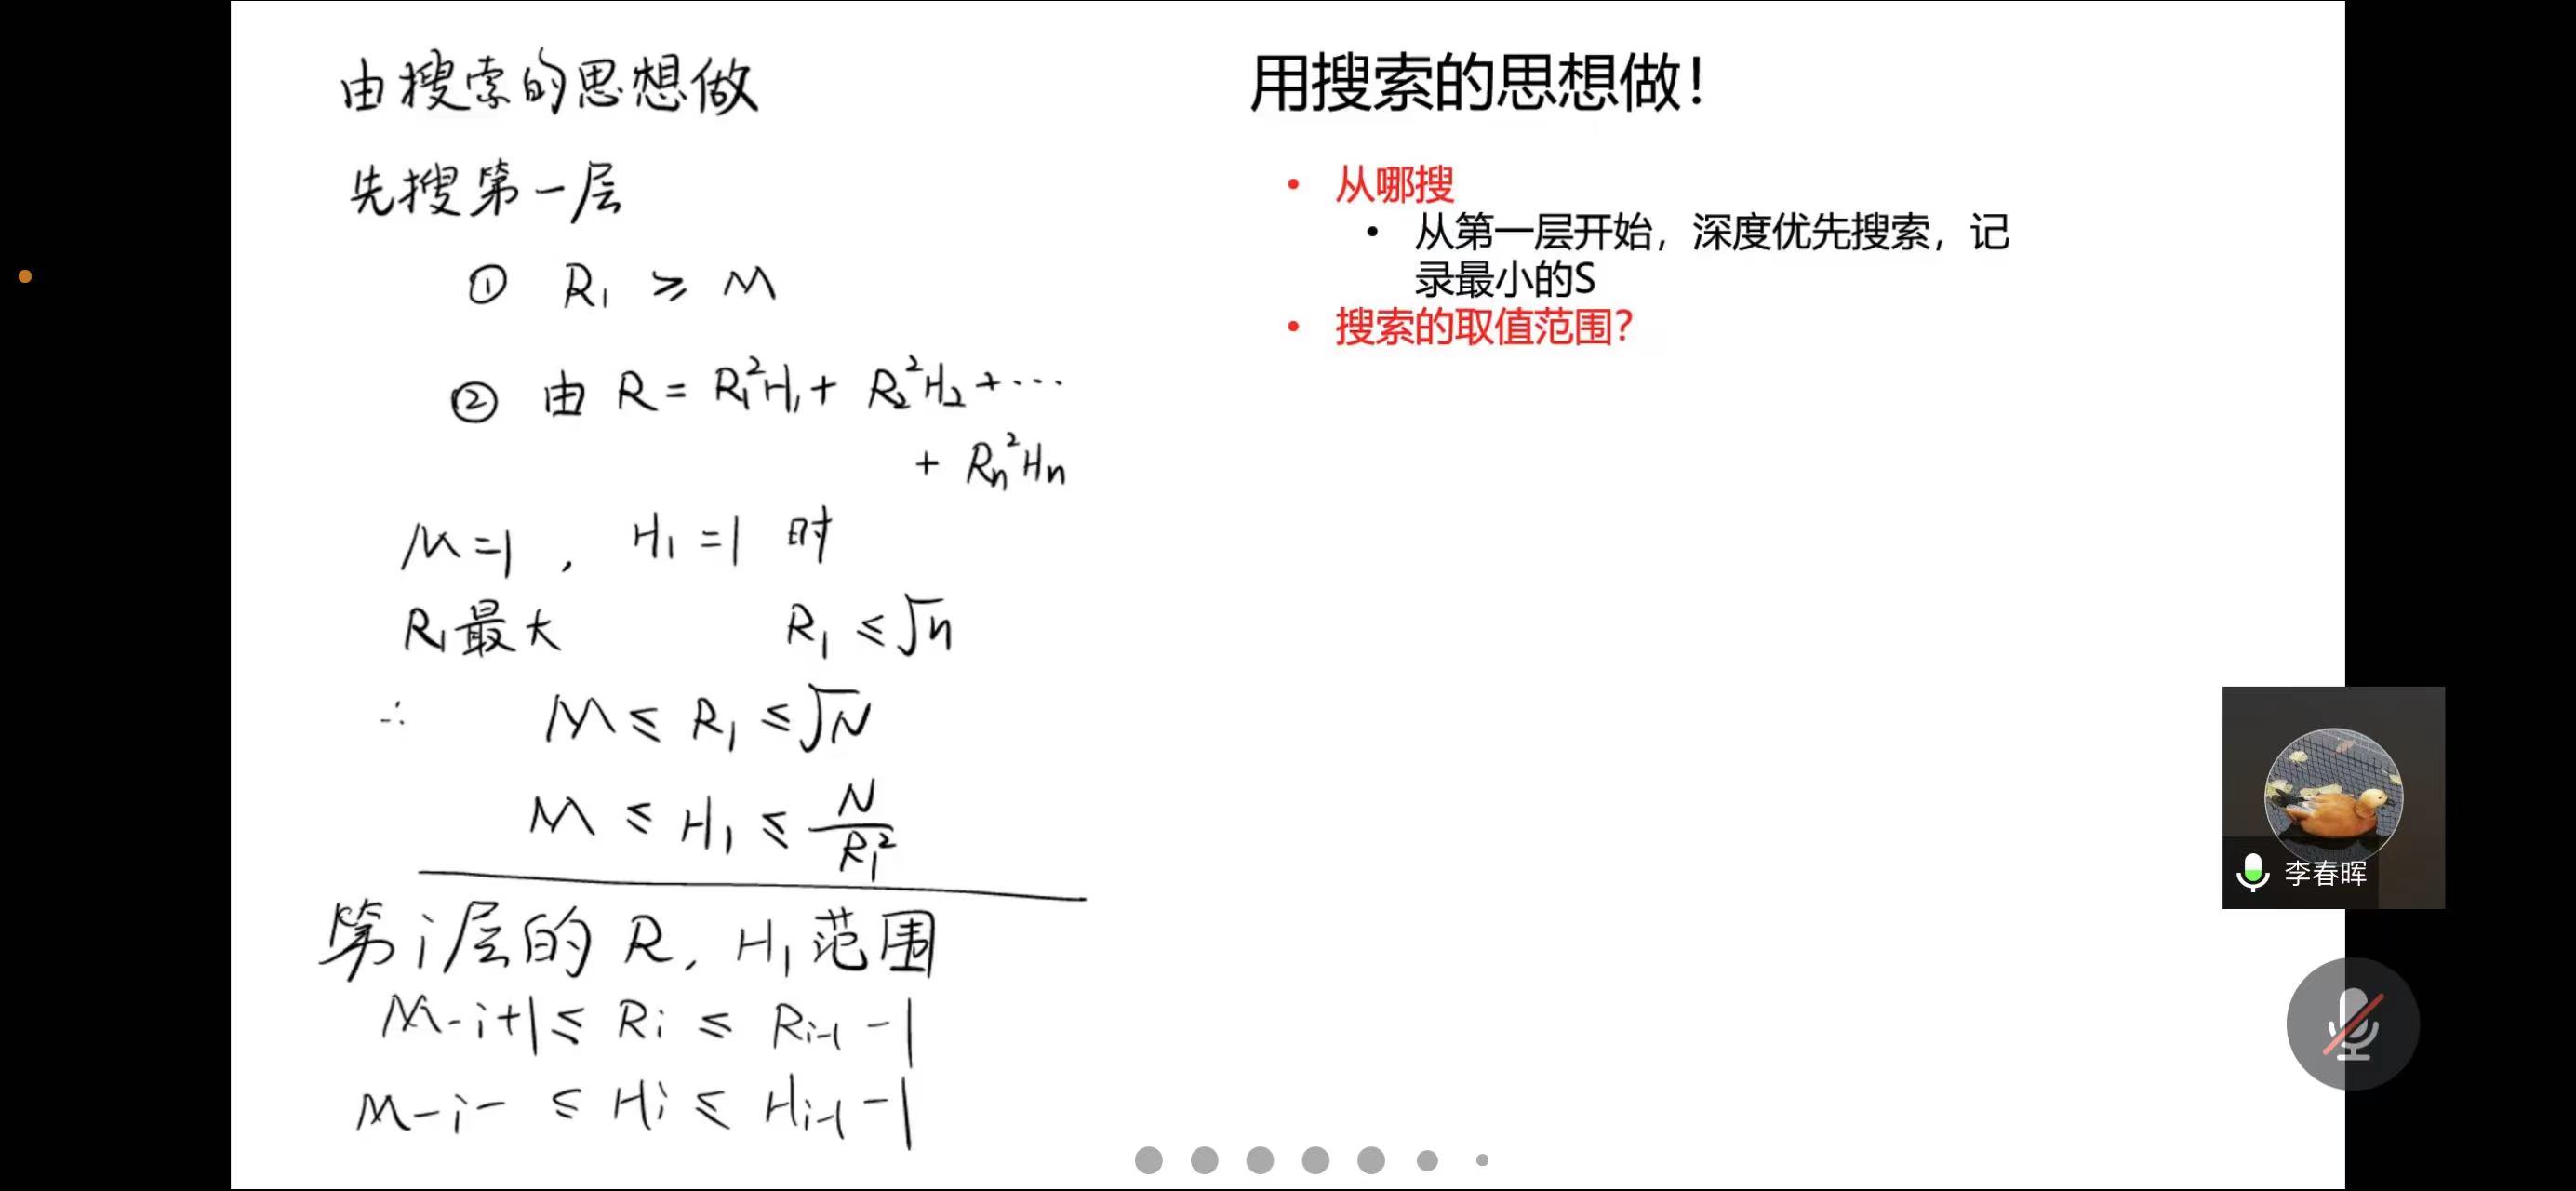 由搜索的思想做
先搜第一层
① R₁ ≥ M
② 由 R = R₁²H₁ + R₂²H₂ + ···
+ Rₙ²Hₙ
M=1, H₁=1 时
R₁最大 R₁ ≤ √n
∴ M ≤ R₁ ≤ √N
M ≤ H₁ ≤ N/R₁²
第i层的 R, H₁范围
M-i+1 ≤ Rᵢ ≤ Rᵢ₋₁ -1
M-i- ≤ Hᵢ ≤ Hᵢ₋₁ -1
用搜索的思想做！
• 从哪搜
• 从第一层开始，深度优先搜索，记
录最小的S
• 搜索的取值范围？
李春晖